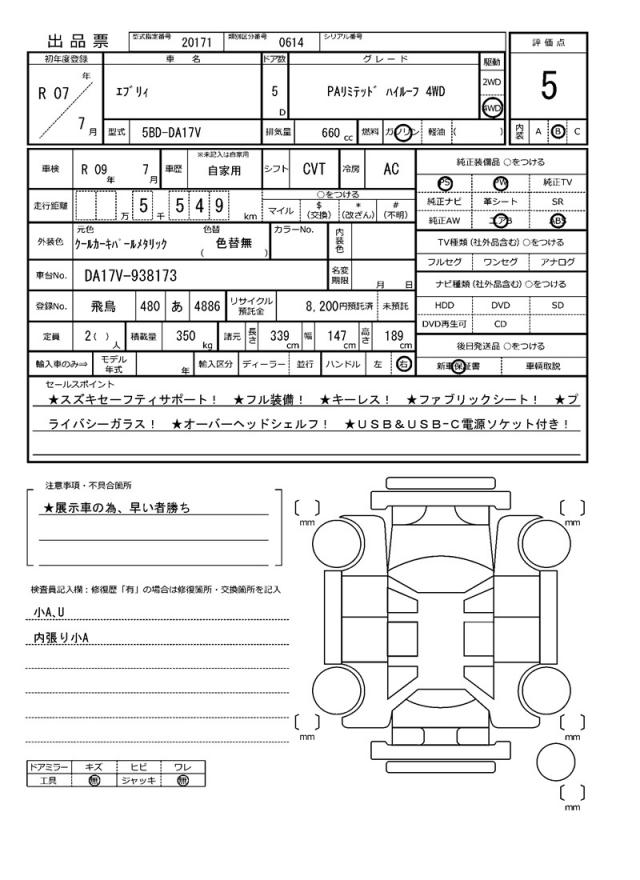 出品票 型式指定番号 20171 類別区分番号 0614 シリアル番号
評価点
5
初年度登録 車名 ドア数 グレード 駆動
R 07 年 7 月 エブリィ 5 D PAリミテッド ハイルーフ 4WD 2WD 4WD
型式 5BD-DA17V 排気量 660 cc 燃料 ガソリン 軽油 ( ) 内装 A B C
車検 R 09 年 7 月 車歴 ※未記入は自家用 自家用 シフト CVT 冷房 AC
走行距離 万 5 千 5 4 9 km
○をつける
マイル $(交換) *(改ざん) #(不明)
外装色 元色 クールカーキパールメタリック 色替 ( 色替無 ) カラーNo. 内装色
車台No. DA17V-938173 名変期限 月 日
登録No. 飛鳥 480 あ 4886 リサイクル預託金 8,200円預託済 未預託
定員 2( )人 積載量 350 kg 諸元 長さ 339 cm 幅 147 cm 高さ 189 cm
輸入車のみ⇒ モデル年式 年 輸入区分 ディーラー 並行 ハンドル 左 右
純正装備品 ○をつける
PS PW 純正TV
純正ナビ 革シート SR
純正AW エアB ABS
TV種類 (社外品含む) ○をつける
フルセグ ワンセグ アナログ
ナビ種類 (社外品含む) ○をつける
HDD DVD SD
DVD再生可 CD
後日発送品 ○をつける
新車保証書 車輌取説
セールスポイント
★スズキセーフティサポート! ★フル装備! ★キーレス! ★ファブリックシート! ★プ
ライバシーガラス! ★オーバーヘッドシェルフ! ★USB&USB-C電源ソケット付き!
注意事項・不具合箇所
★展示車の為、早い者勝ち
検査員記入欄:修復歴「有」の場合は修復箇所・交換箇所を記入
小A,U
内張り小A
ドアミラー キズ ヒビ ワレ
工具 無 ジャッキ 無
mm
mm
mm
mm
mm